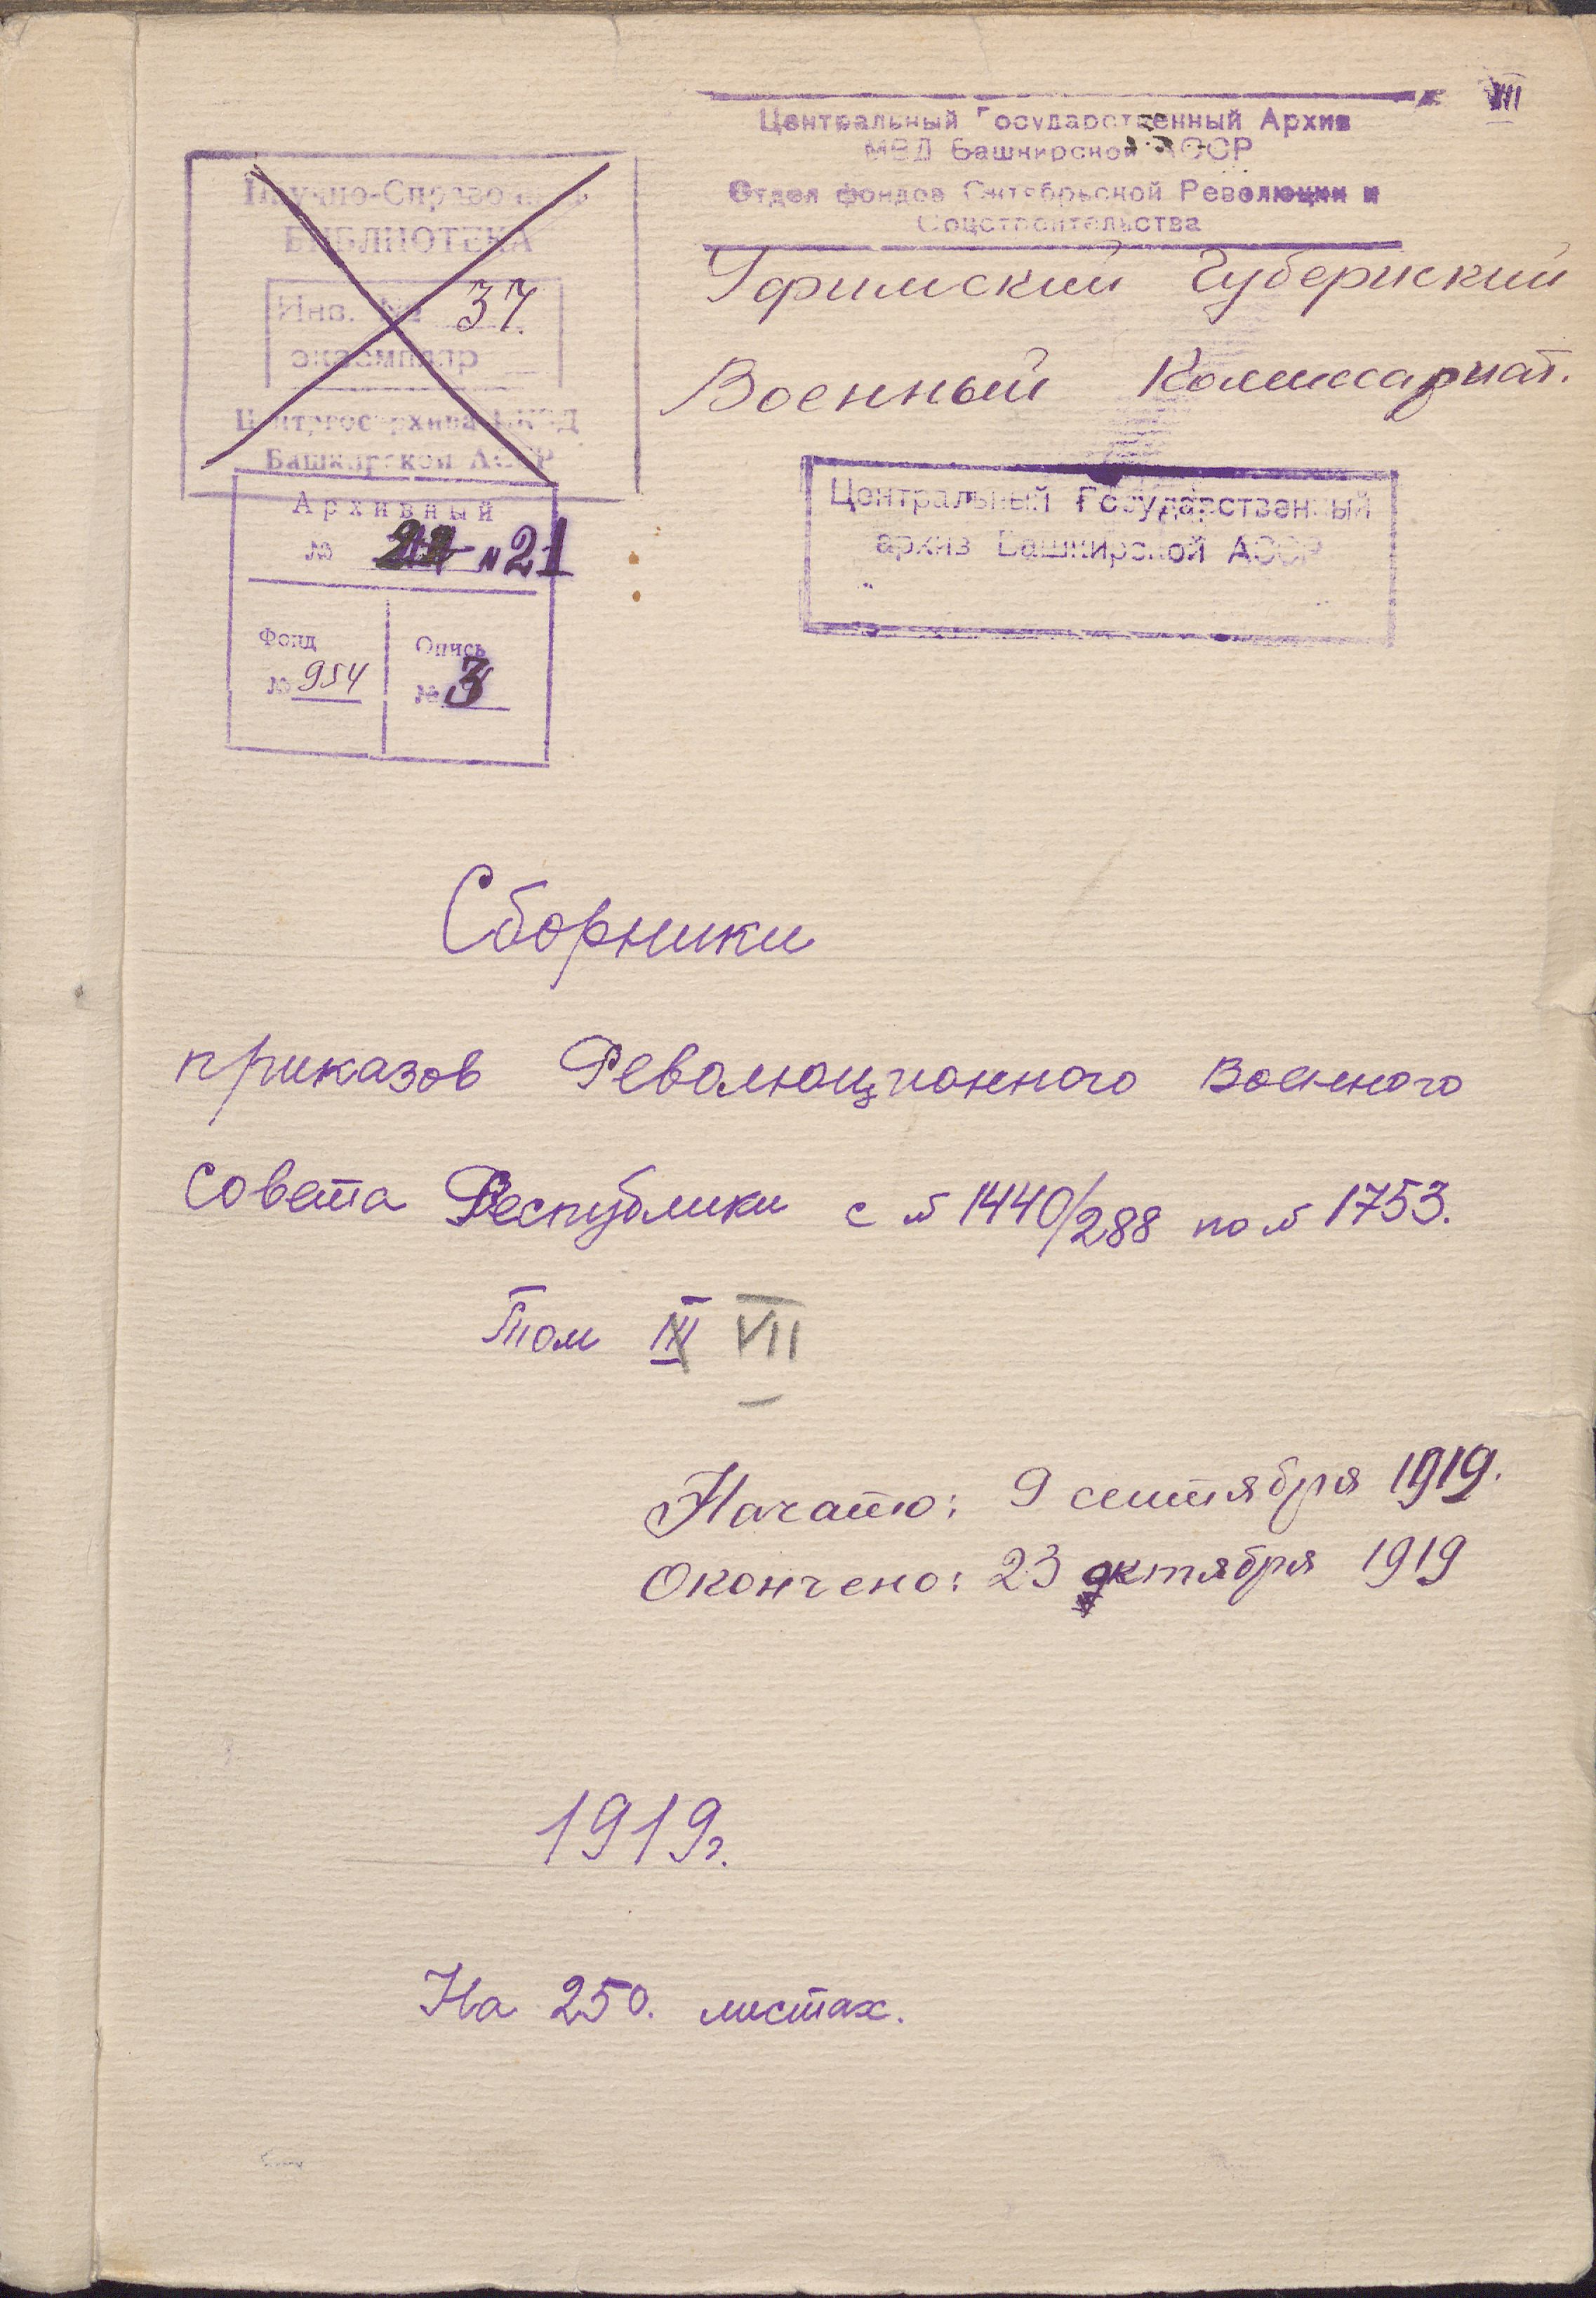 VIII
Центральный Государственный Архив
МВД Башкирской АССР
Отдел фондов Октябрьской Революции и
Соцстроительства
Научно-Справочная
БИБЛИОТЕКА
Инв. № 37
экземпляр
Центргосархива НКВД
Башкирской АССР
Уфимский Губернский
Военный Комиссариат.
Центральный Государственный
архив Башкирской АССР
Архивный
№ 21
Фонд
№ 954
Опись
№ 3
Сборники
приказов Революционного Военного
Совета Республики с № 1440/288 по № 1753.
Том VII
Начато: 9 сентября 1919.
Окончено: 23 октября 1919
1919г.
На 250. листах.